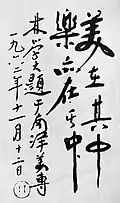 美在其中
樂亦在其中
林學大題于南洋美專
一九六二年十一月十二日